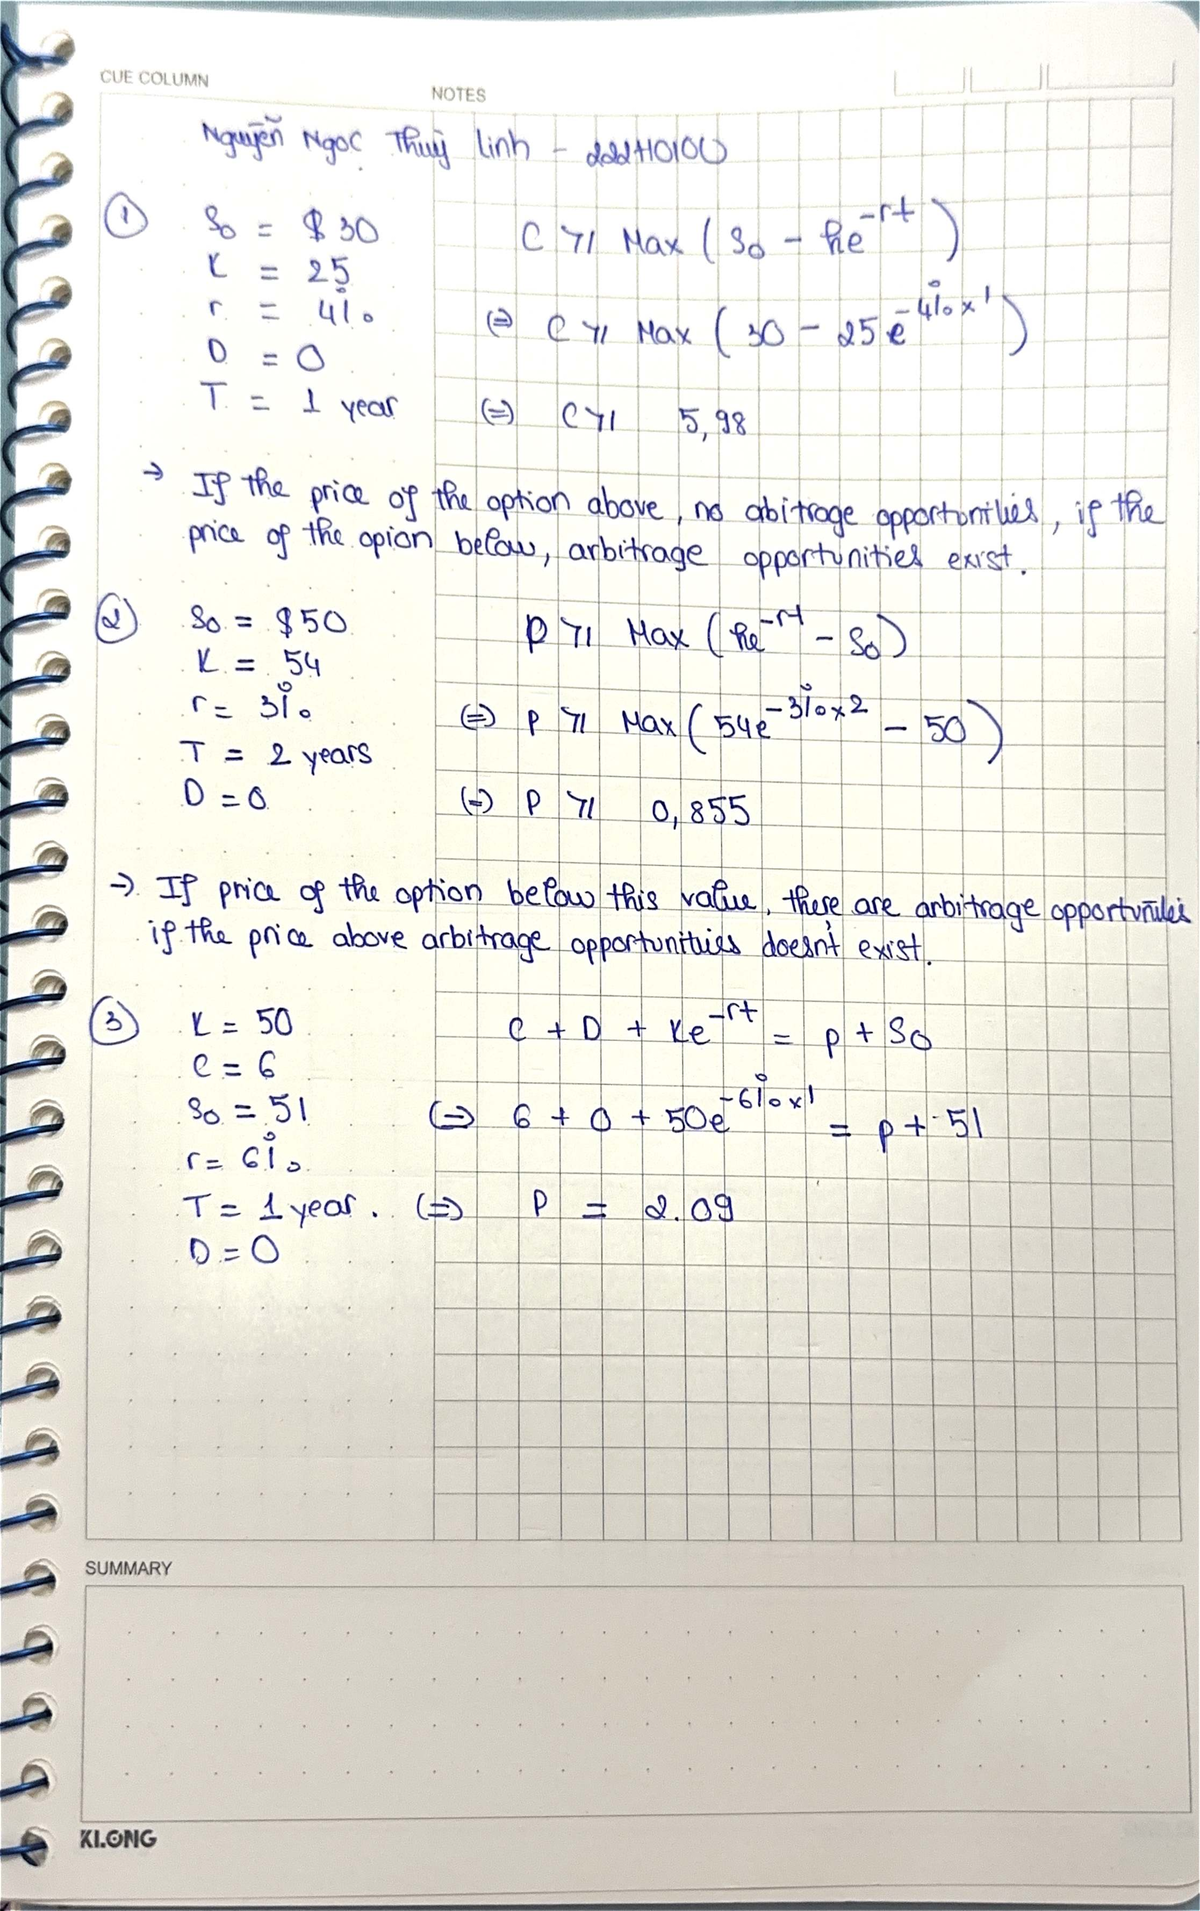 CUE COLUMN
NOTES
Nguyễn Ngọc Thuỳ Linh -
① S₀ = $30
K = 25
r = 4%
D = 0
T = 1 year
C ≥ Max ( S₀ - Ke^-rt )
(=) C ≥ Max ( 30 - 25e^-4%x1 )
(=) C ≥ 5,98
→ If the price of the option above, no abitrage opportunities, if the
price of the opion below, arbitrage opportunities exist.
② S₀ = $50
K = 54
r = 3%
T = 2 years
D = 0
P ≥ Max ( Ke^-rt - S₀ )
(=) P ≥ Max ( 54e^-3%x2 - 50 )
(=) P ≥ 0,855
→ If price of the option below this value, there are arbitrage opportunities
if the price above arbitrage opportunities doesn't exist.
③ K = 50
C = 6
S₀ = 51
r = 6%
T = 1 year.
D = 0
C + D + Ke^-rt = P + S₀
(=) 6 + 0 + 50e^-6%x1 = P + 51
(=) P = 2.09
SUMMARY
KLONG